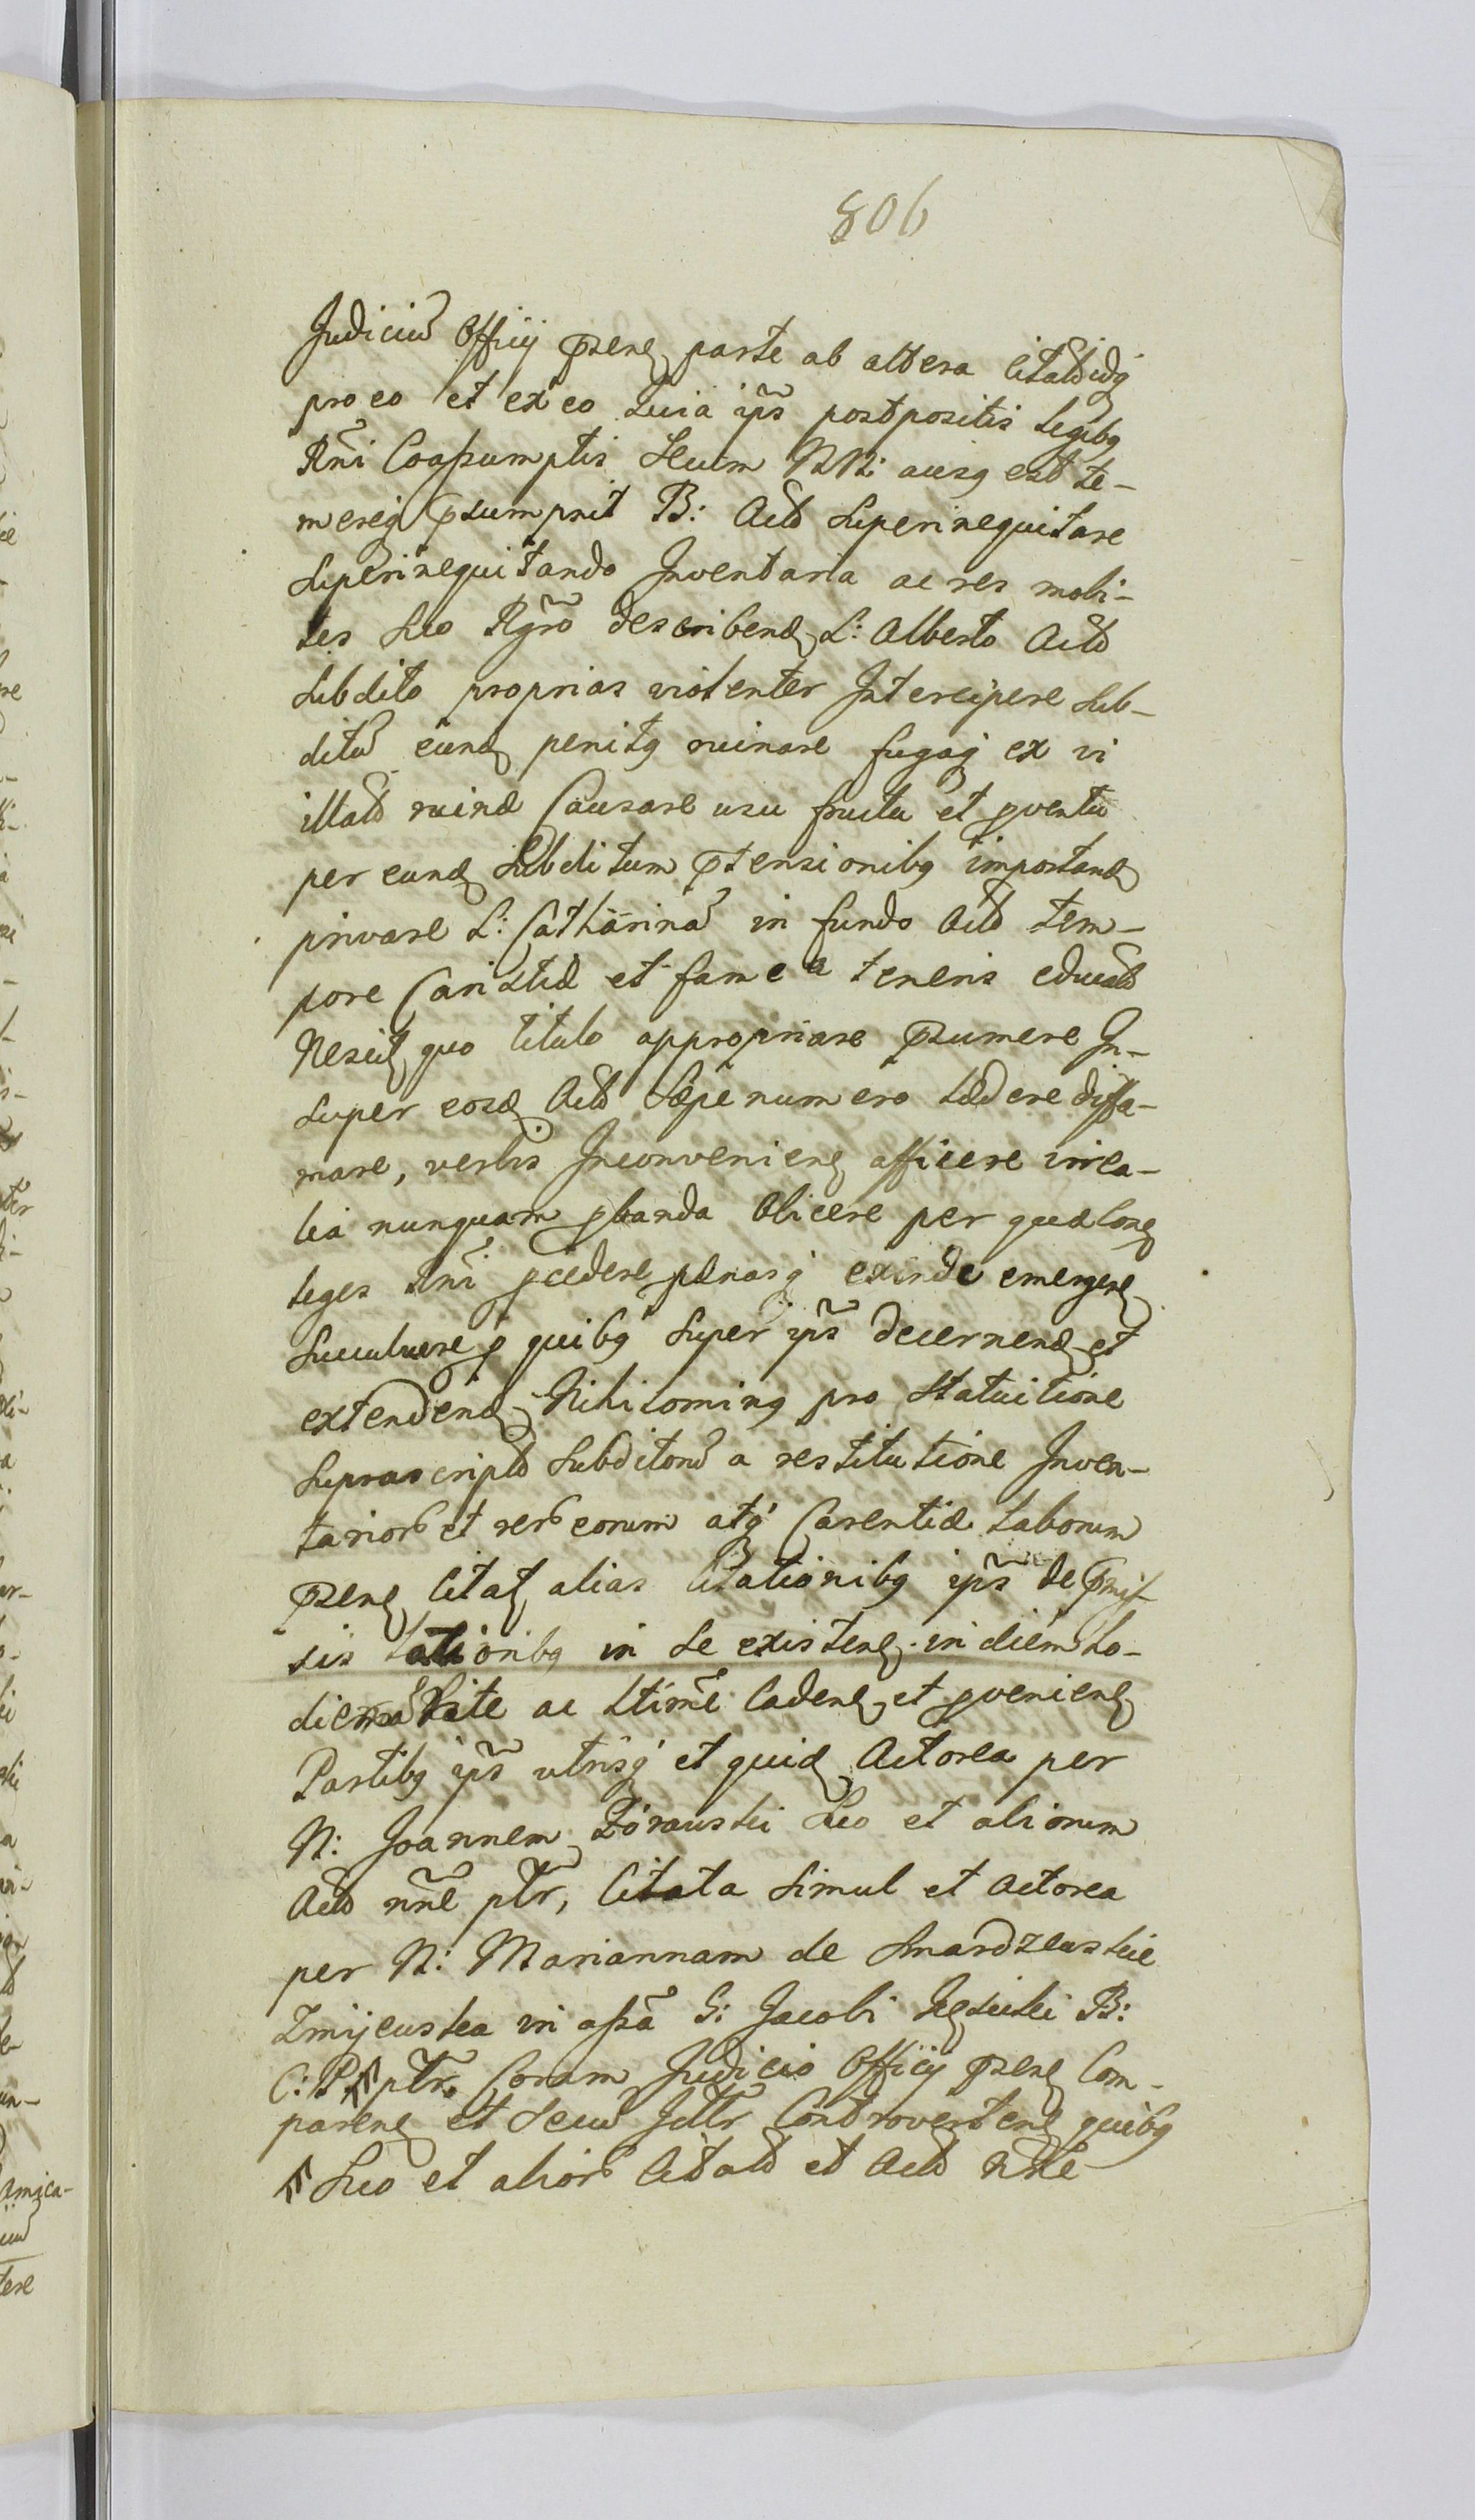 806
Judiciũ Officij p̃senẽ parte ab altera Citatõ idq
pro eo et ex eo Quia ip̃s postpositis legibq
Rñi Coassumptis Secum NN: ausq est te-
mereq p̃sumpsit B: Actõ Superinequitare
Superinequitando Inventaria ac res mobi-
les Suo Rg̃ro describend L: Alberto Actõ
Subdito proprias violenter Intercipere Sub-
ditũ eund penitq ruinare fugaq ex vi
illatõ ruinæ Causare usu fructu et p̱ventu
per eund Subditum p̃tensionibq importand
privare L: Catharinã in fundo Actõ tem-
pore Caristiæ et fame a teneris educatõ
Nescit quo titulo appropriare p̃sumere In-
super eosd Actõ Sæpenumero lædere diffa-
mare, verbis Inconvenienẽ afficere irrea-
lia nunquam p̱banda Obiicere per quæ lonẽ
leges Rñi p̱cedere pænasq exinde emergenẽ
Succubuere p̱ quibq Super ip̃s decernend et
extendend Nihilominq pro Statuitione
Suprascriptõ Subditorũ a restitutione Inven-
tariorõ et rerõ eorum atq Carentiæ laborum
p̃senẽ Citat alias Citationibq ip̃s de p̃mis-
sis lationibq in se existenẽ in diem ho-
diernã Rite ac Ltĩme Cadenẽ et p̱venienẽ
Partibq ip̃s utrisq et quid Actorea per
N: Joannem Zórawski Suo et aliorum
Actõ nñe pt̃r, Citata Simul et Actorea
per N: Mariannam de Smardzewskie
Zmijewska in assã G: Jacobi B:
C: P ↑ pt̃r. Coram Judicio Officij p̃senẽ Com-
parenẽ et Secũ Controvertenẽ quibq
↑ Suo et aliorõ Citatõ et Actõ nñe